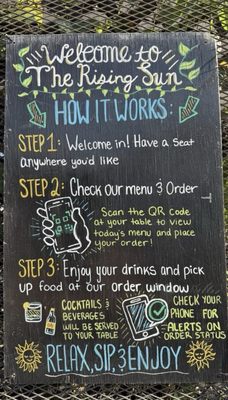 Welcome to
The Rising Sun
HOW IT WORKS:
STEP 1: Welcome in! Have a Seat
anywhere you'd like
STEP 2: Check our menu & Order
Scan the QR code
at your table to view
today's menu and place
your order!
STEP 3: Enjoy your drinks and pick
up food at our order window
COCKTAILS &
BEVERAGES
WILL BE SERVED
TO YOUR TABLE
CHECK YOUR
PHONE FOR
ALERTS ON
ORDER STATUS
RELAX, SIP, & ENJOY